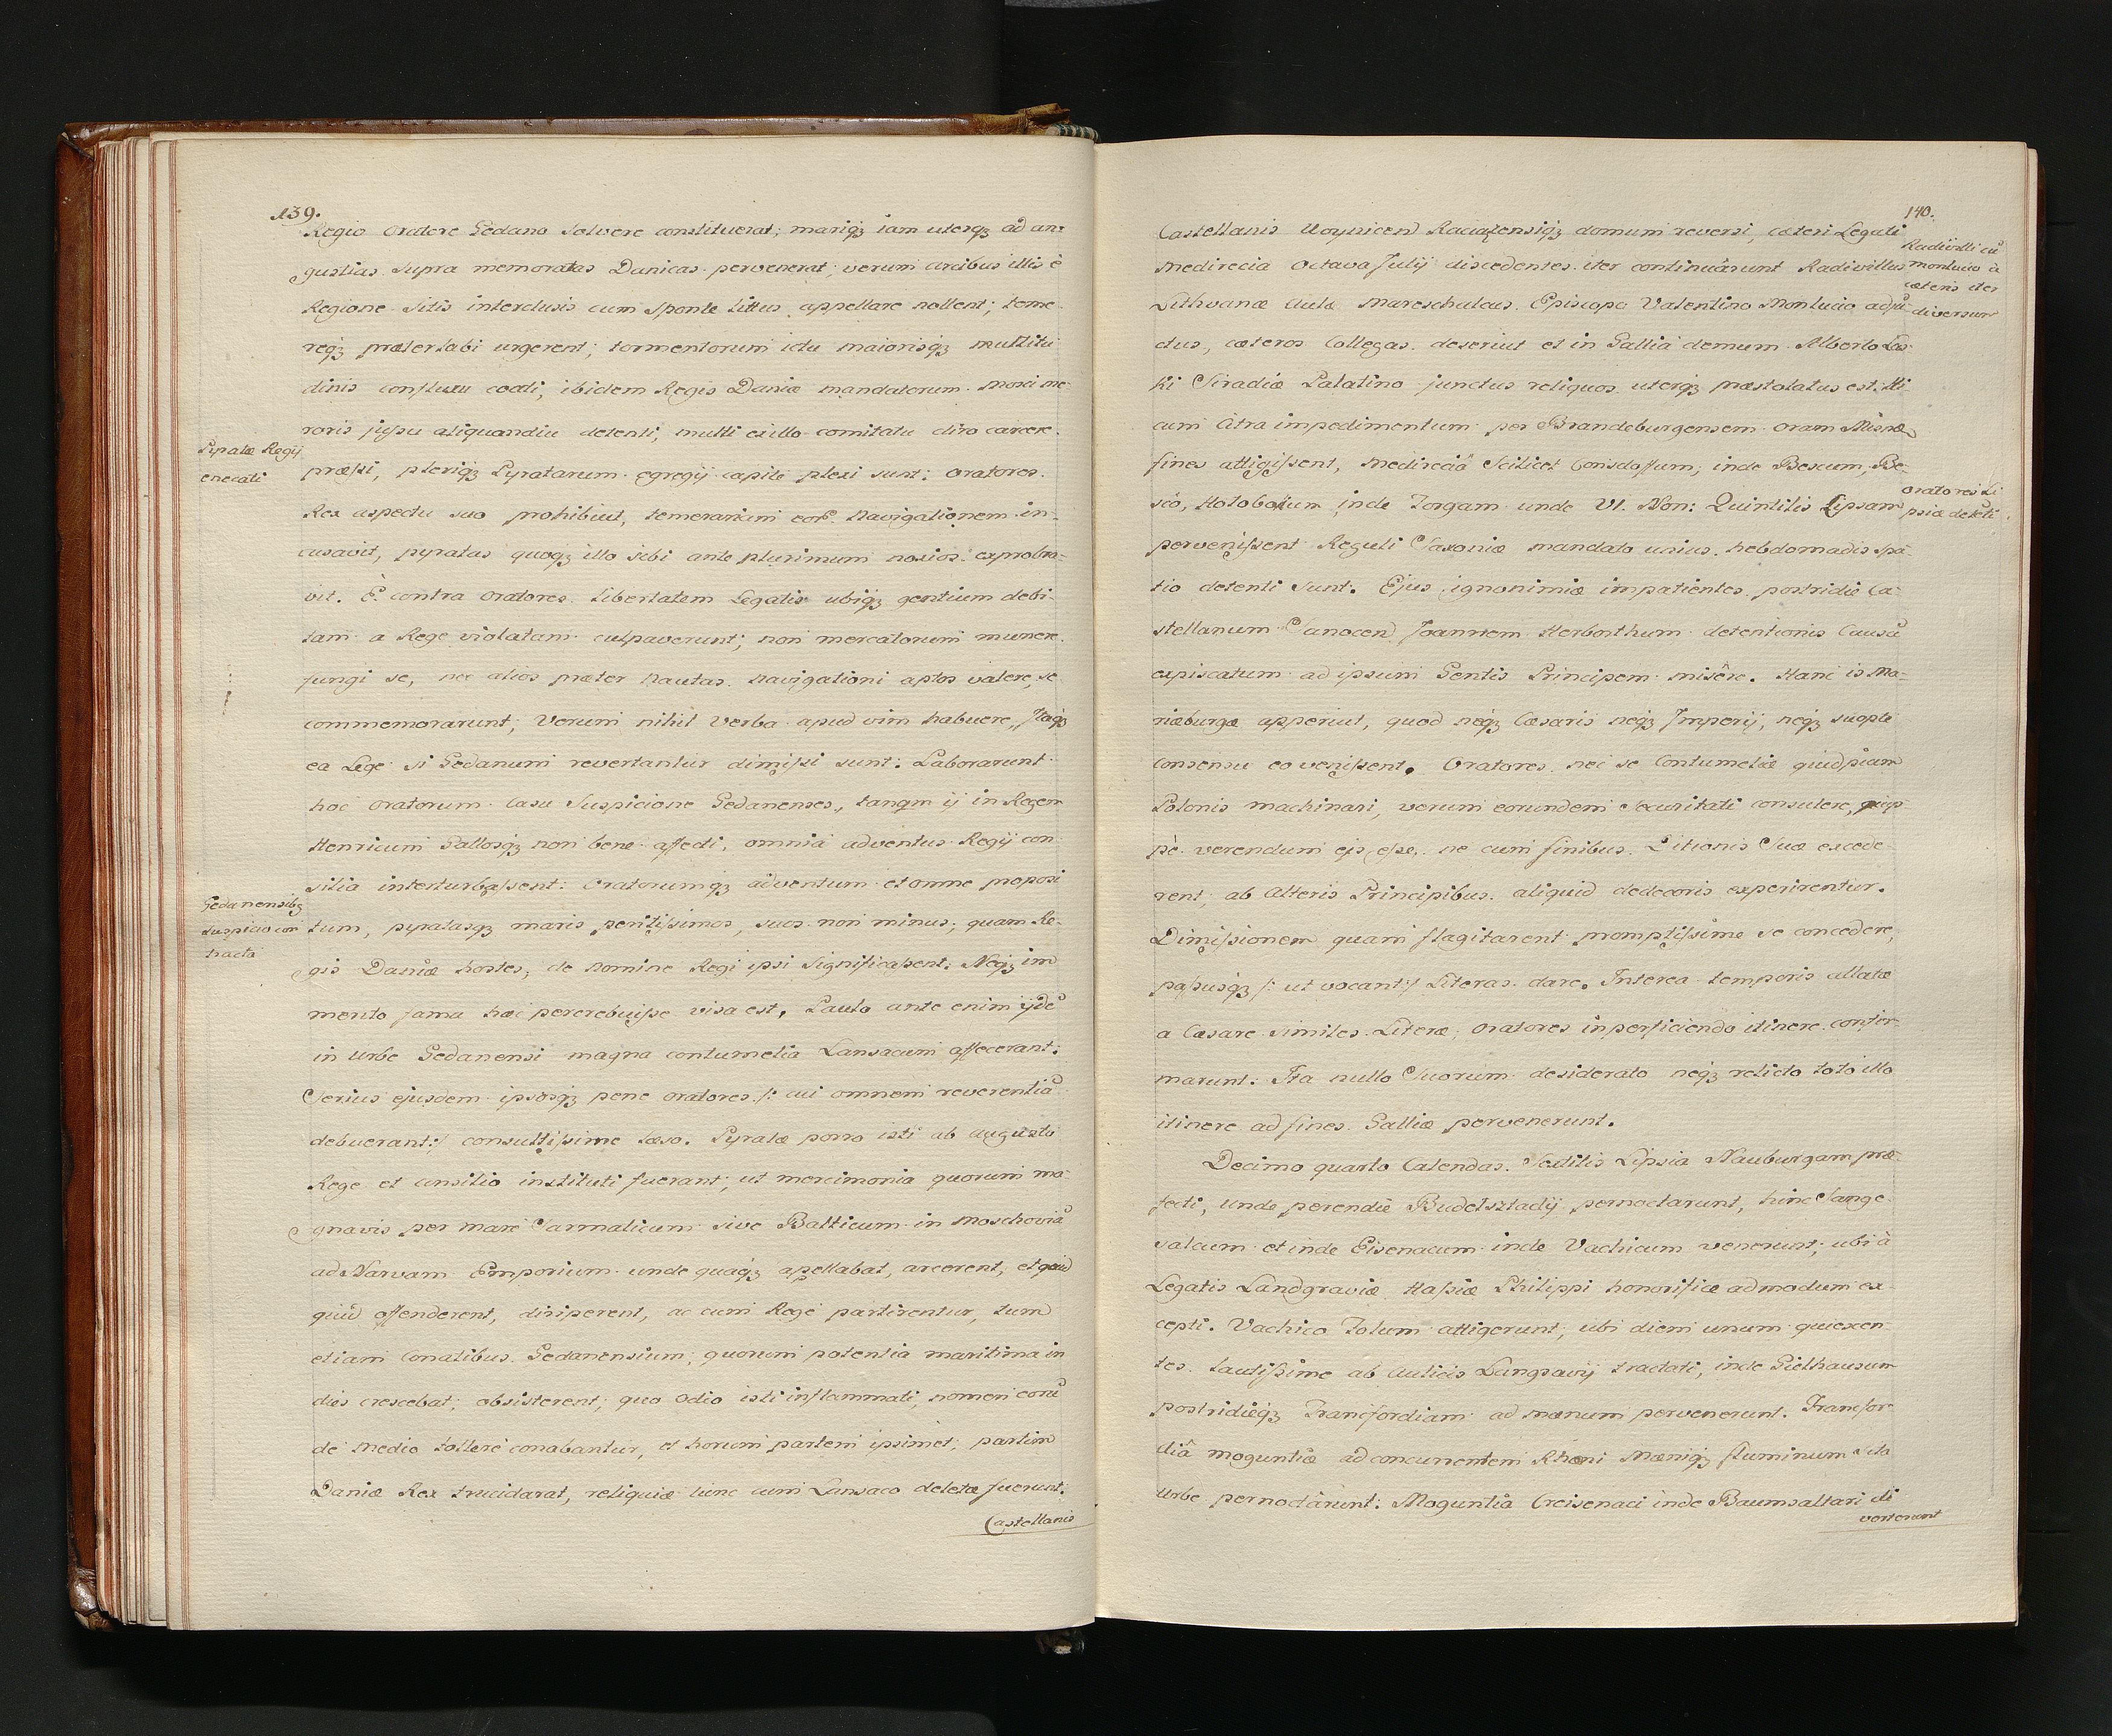 139.
Regio Oratore Gedano Solvere constituerat; mariqȝ iam uterqȝ ad an-
gustias supra memoratas Danicas pervenerat; verum arcibus illis è
Regione Sitis interclusis cum Sponte littus appellare nollent; teme-
reqȝ præterlabi urgerent; tormentorum ictu maiorisqȝ multitu
dinis confluxu coacti, ibidem Regis Daniæ mandatorum
roris jussu aliquandiu detenti, multi ex illo comitatu diro carcere
Pyratæ Regij
enecati
præssi, pleriqȝ Pyratarum egregij capite plexi sunt: Oratores
Rex aspectu suo prohibuit, temerariam Navigationem in-
cusavit, pyratas quoqȝ illo sibi ante plurimum noxios exprobra-
vit. È contra Oratores libertatem Legatis ubiqȝ gentium debi-
tam a Rege violatam culpaverunt; non mercatorum munere
fungi se, nec alios præter Nautas Navigationi aptos valere, se
commemorarunt; Verum nihil Verba apud vim habuere, Itaqȝ
ea Lege si Gedanum revertantur dimissi sunt: Laborarunt
hoc Oratorum Casu Suspicione Gedanenses, tanqm ij in Regem
Henricum Gallosqȝ non bene affecti, omnia adventus Regij con
silia interturbassent: Oratorumqȝ adventum et omne proposi
Gedanensibȝ
suspicio con
tracta
tum, pyratasqȝ maris peritissimos, suos non minus, quam Re-
gis Daniæ hostes, de Nomine Regi ipsi Significassent: Neqȝ im
merito fama hæc percrebuisse visa est, Paulo ante enim ijdē
in Urbe Gedanensi magna contumelia Lansacum affecerant:
Serius ejusdem ipsosqȝ pene Oratores /: cui omnem reverentiā
debuerant:/ consultissime læso. Pyratæ porro isti ab Augusto
Rege et consilio instituti fuerant, ut mercimonia quorum ma-
gnavis per mare Sarmaticum sive Balticum in Moschoviā
ad Narvam Emporium unde quaqȝ apellabat, arcerent, et quid
quid offenderent, diriperent, ac cum Rege partirentur, tum
etiam Conatibus Gedanensium, quorum potentia maritima in
dies crescebat; obsisterent; quo Odio isti inflammati, nomen eorū
de Medio tollere conabantur, et horum partem ipsimet, partim
Daniæ Rex trucidarat, reliquiæ hinc cum Lansaco deletæ fuerunt.
Castellanis
140.
Castellanis Uoynicen Raciazensiqȝ domum reversi, cæteri Legati
Radivilli cū
Montucio à
cæteris iter
diversum
Medirecia Octava Julij discedentes iter continuârunt Radivillus
Lithvanæ Aulæ Mareschalcus Episcopo Valentino Monlucio adjū
ctus, cæteros Collegas deseruit et in Galliâ demum Alberto Las-
ki Siradiæ Palatino junctus reliquos uterqȝ præstolatus est: Hi
cum Citra impedimentum per Brandeburgensem oram Misnæ
fines attigissent, Medireciâ Scilicet inde Bescum, Be-
scò, Hotobokum inde Torgam unde VI. Non: Quintilis Lipsam
Oratores Li
psiæ detēti
pervenissent Reguli Saxoniæ mandato unius hebdomadis Spa-
tio detenti sunt. Ejus ignonimiæ impatientes, postridie Ca-
stellanum Sanocen Joannem Herborthum detentionis Causâ
expiscatum ad ipsum Gentis Principem misêre. Hanc is Ma-
riæburgæ apperiut, quod neqȝ Cæsaris neqȝ Imperij, neqȝ suopte
Consensu eo venissent. Oratores nec se Contumeliæ quidpiam
Polonis machinari, verum eorundem Securitati consulere, quip
pè verendum ejs esse, ne cum finibus Ditionis Suæ excede
rent, ab Alteris Principibus aliquid dedecoris experirentur.
Dimissionem quam flagitarent promptissime se concedere,
passusqȝ /: ut vocant:/ Literas dare. Interea temporis allatæ
a Cæsare similes Literæ Oratores in perficiendo itinere confir-
marunt: Ita nullo Suorum desiderato neqȝ relicto toto illo
itinere ad fines Galliæ pervenerunt.
Decimo quarto Calendas Sextilis Lipsia Nauburgam præ-
fecti, unde perendie Budelsztadij pernoctarunt, hinc Sange-
salcum et inde Eisenacum inde Vachicum venerunt; ubi à
Legatis Landgraviæ Hassiæ Philippi honorificæ admodum ex-
cepti. Vachico Folum attigerunt, ubi diem unum quiescen
tes lautissime ab Aulicis Langravij tractati, inde Gielhausum
postridieqȝ Francfordiam ad mænum pervenerunt. Francfor
diâ moguntiæ ad concurrentem Rhæni Mæniqȝ fluminum sita
Urbe pernoctârunt: Moguntiâ Creisenaci inde Baumsaltari di
verterunt